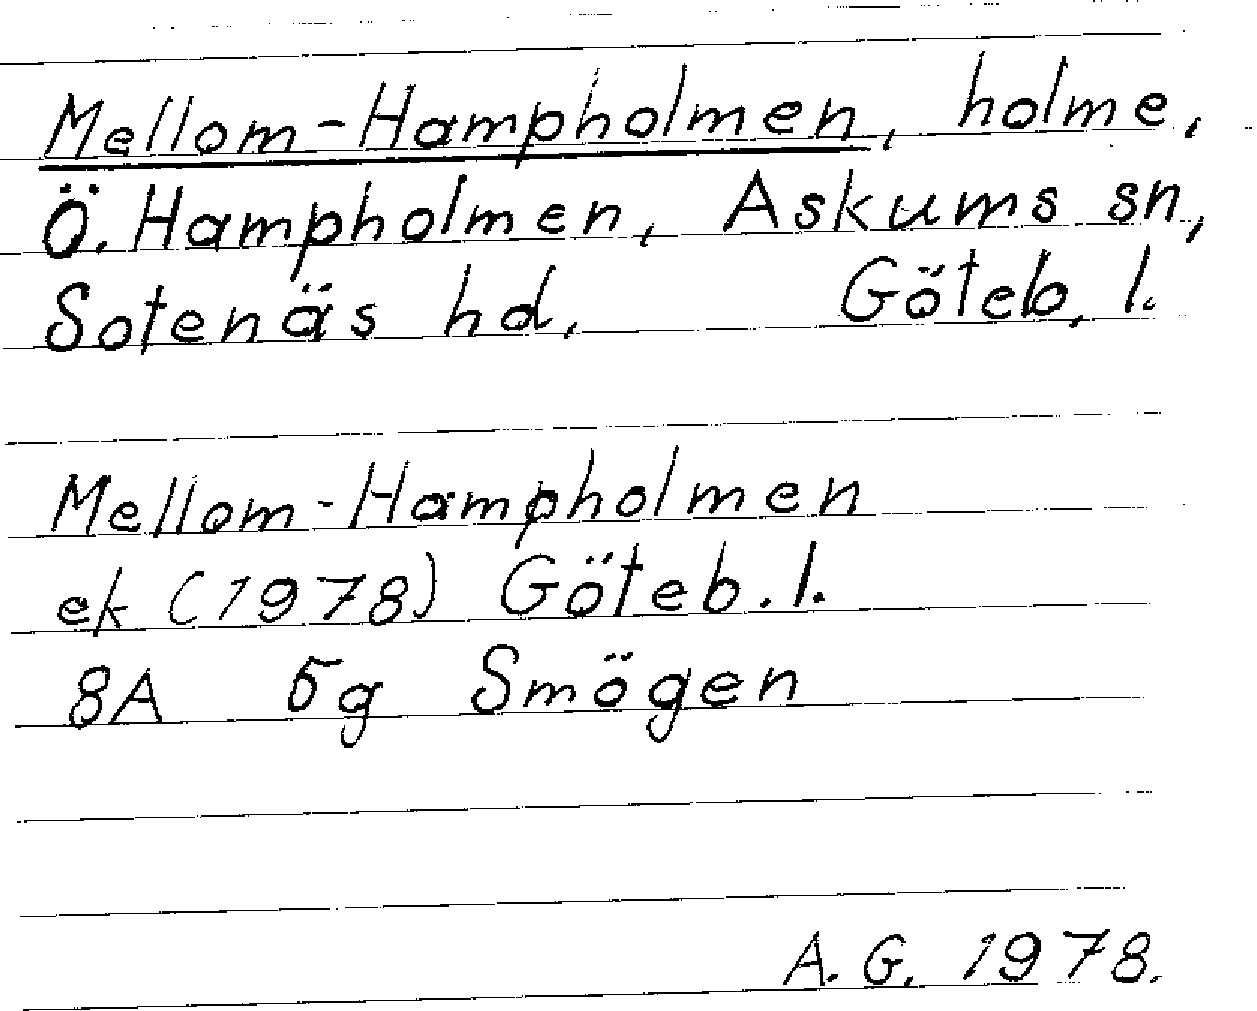 Mellom-Hampholmen, holme,
Ö. Hampholmen, Askums sn,
Sotenäs hd, Göteb. l.
Mellom-Hampholmen
ek (1978) Göteb. l.
8A 5g Smögen
A. G. 1978.